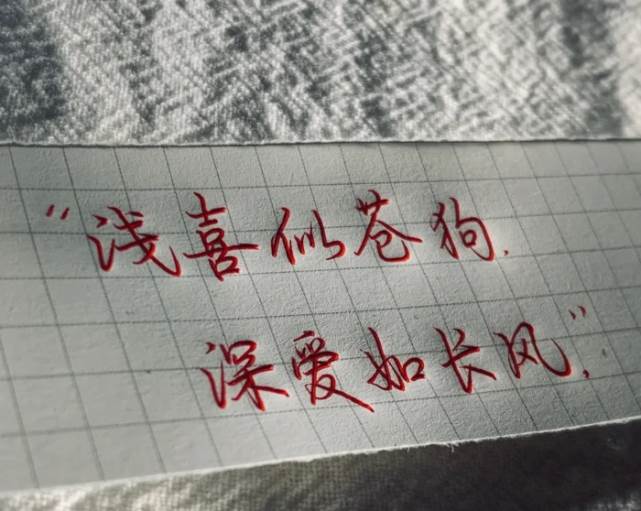 “浅喜似苍狗，
深爱如长风”.